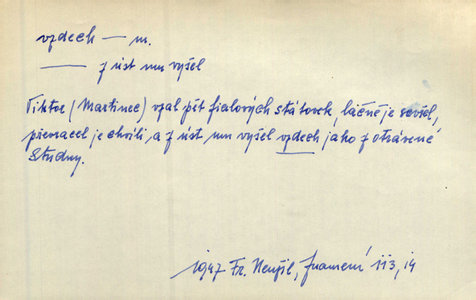 vzdech — m.
—— z úst mu vyšel
Viktor (Martinec) vzal pět fialových státovek, lačně je sevřel,
převracel je chvíli, a z úst mu vyšel vzdech jako z otrávené
studny.
1947 Fr. Neužil, Znamení 113, 14